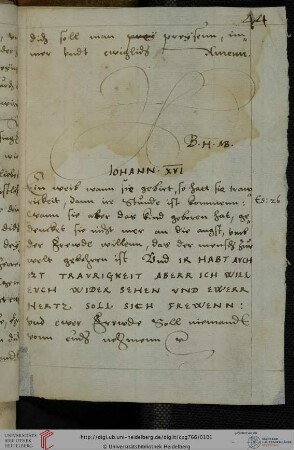 44
dich soll man preÿsenn, im¬
mer vndt ewiglich Amenn
B. H. M.
IOHANN: XVI
Ein weib wann sie gebirt, so hatt sie traw
rikeit, dann ire Stunde ist kommenn:
wann sie aber das kind geboren hat, ge
denckt sie nicht mer an die angst, vmb
der Frewde willenn, das der mensch zur
welt gebohrn ist Vnd IR HABT AVCH
IZT TRAVRIGKEIT ABERR ICH WILL
EVCH WIDER SEHEN VND EWERR
HERTZ SOLL SICH FREWENN:
vnd ewer Frewde Soll niemandt
vonn euch nehmenn
Es: 26
UNIVERSITÄTS-
BIBLIOTHEK
HEIDELBERG
http://digi.ub.uni-heidelberg.de/diglit/cpg766/0101
© Universitätsbibliothek Heidelberg